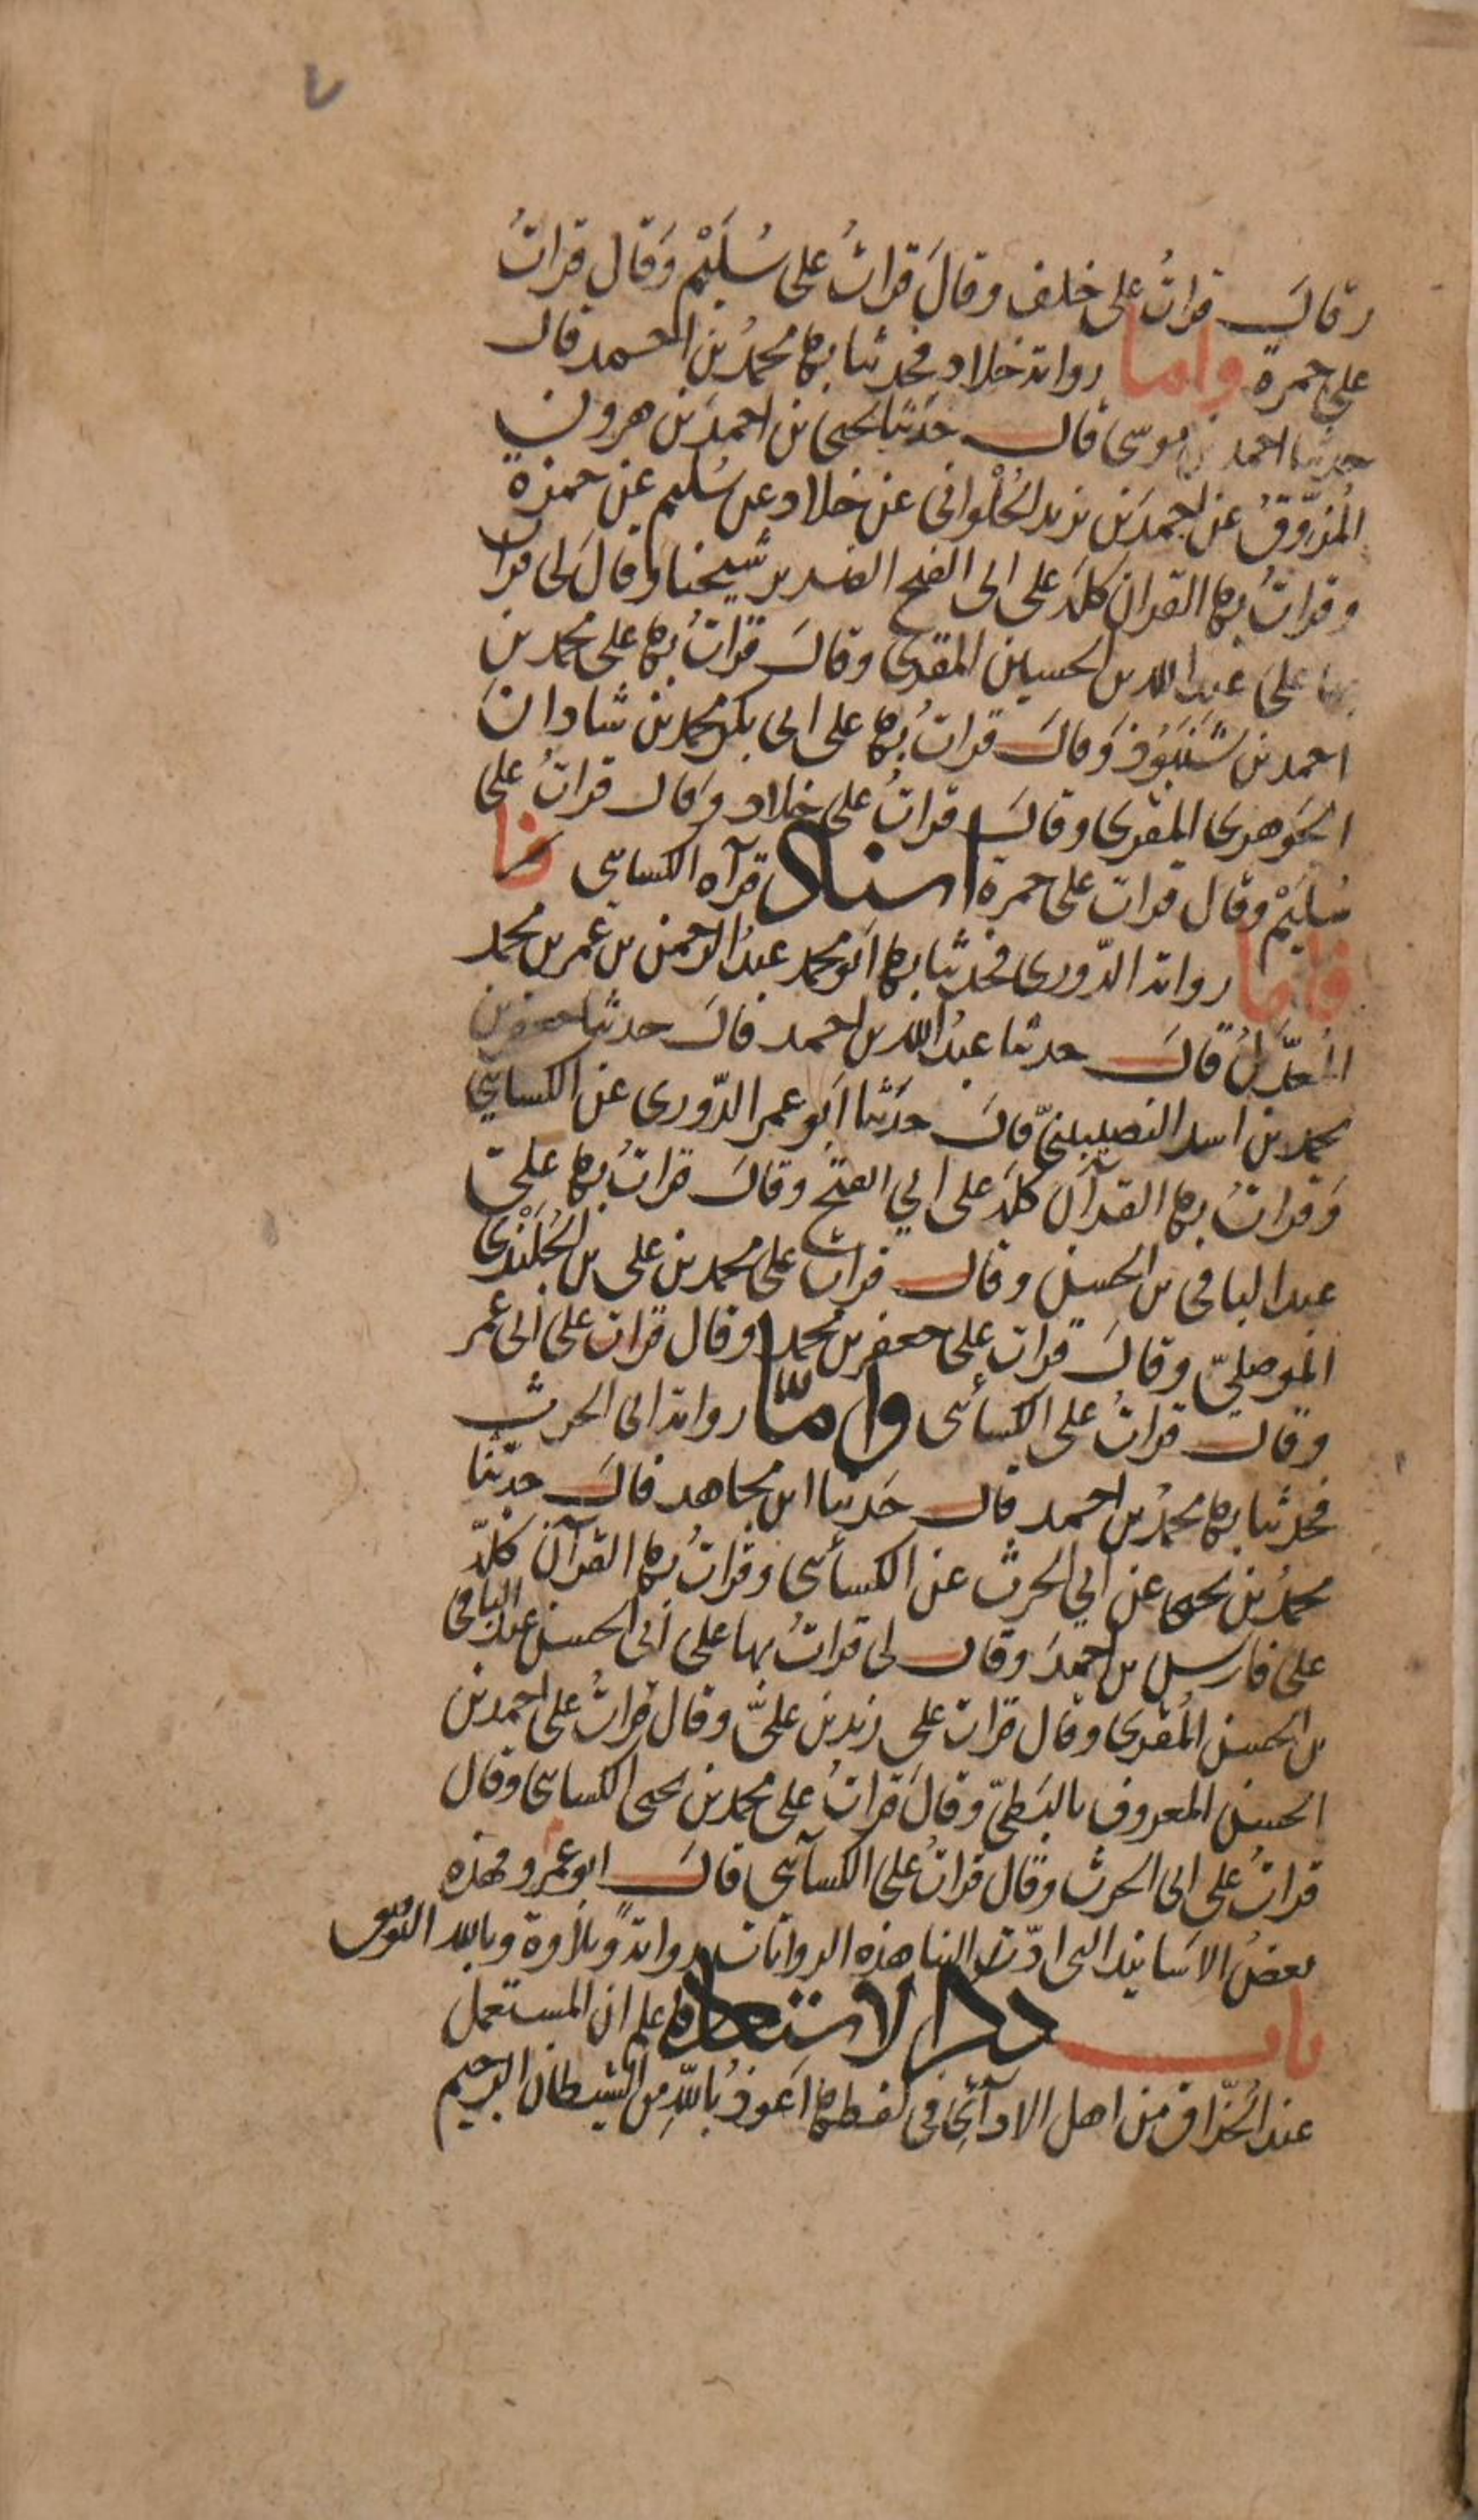 ٧
وقال قرات على خلف وقال قرات على سليم وقال قرات
على حمزة واما رواية خلاد فحدثنا بها محمد بن احمد قال
حدثنا احمد بن موسى قال حدثنا يحيى بن احمد بن هرون
المزوق عن احمد بن يزيد الحلواني عن خلاد عن سليم عن حمزة
وقرات بها القران كله على ابي الفتح الضرير شيخنا وقال لي قرات
بها على عبد الله بن الحسين المقرى وقال قرات بها على محمد بن
احمد بن شنبوذ وقال قرات بها على ابي بكر محمد بن شاذان
الجوهرى المقرى وقال قرات على خلاد وقال قرات على
سليم وقال قرات على حمزة اسناد قرآة الكسائى
فاما رواية الدّورى فحدثنا بها ابو محمد عبد الرحمن بن عمر بن محمد
المعدّل قال حدثنا عبد الله بن احمد قال حدثنا جعفر بن
محمد بن اسد النصيبىّ قال حدثنا ابو عمر الدّورى عن الكسايي
وقرات بها القرآن كله على ابي الفتح وقال قرات بها على
عبد الباقى بن الحسن وقال قرات على محمد بن على بن الجلندى
الموصليّ وقال قرات على جعفر بن محمد وقال قرات على ابى عمر
وقال قرات على الكسأئى وامّا رواية ابى الحرث
فحدثنا بها محمد بن احمد قال حدثنا ابن مجاهد قال حدثنا
محمد بن يحيى عن ابي الحرث عن الكسأئى وقرات بها القرآن كله
على فارس بن احمد وقال لى قرات بها على أبى الحسن عبد الباقى
بن الحسن المقرى وقال قرات على زيد بن علىّ وقال قرات على احمد بن
الحسن المعروف بالبطىّ وقال قرات على محمد بن يحيى الكسائى وقال
قرات على ابى الحرث وقال قرات على الكسآئى قال ابو عمرو فهذه
بعض الاسانيد التى ادّت الينا هذه الروايات رواية وتلاوة وبالله التوفيق
باب ذكر الاستعاذة اعلم ان المستعمل
عند الحذّاق من اهل الادآئ فى لفظها اعوذ بالله من الشيطان الرجيم